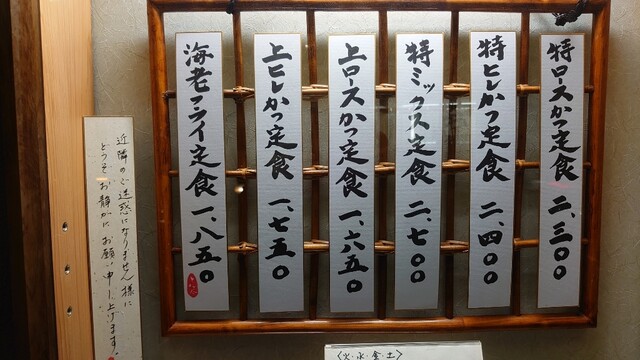 特ロースかつ定食 二、三〇〇
特ヒレかつ定食 二、四〇〇
特ミックス定食 二、七〇〇
上ロースかつ定食 一、六五〇
上ヒレかつ定食 一、七五〇
海老フライ定食 一、八五〇
近隣のご迷惑になりません様に
どうぞお静かにお願い申し上げます。
〈火・水・金・土〉